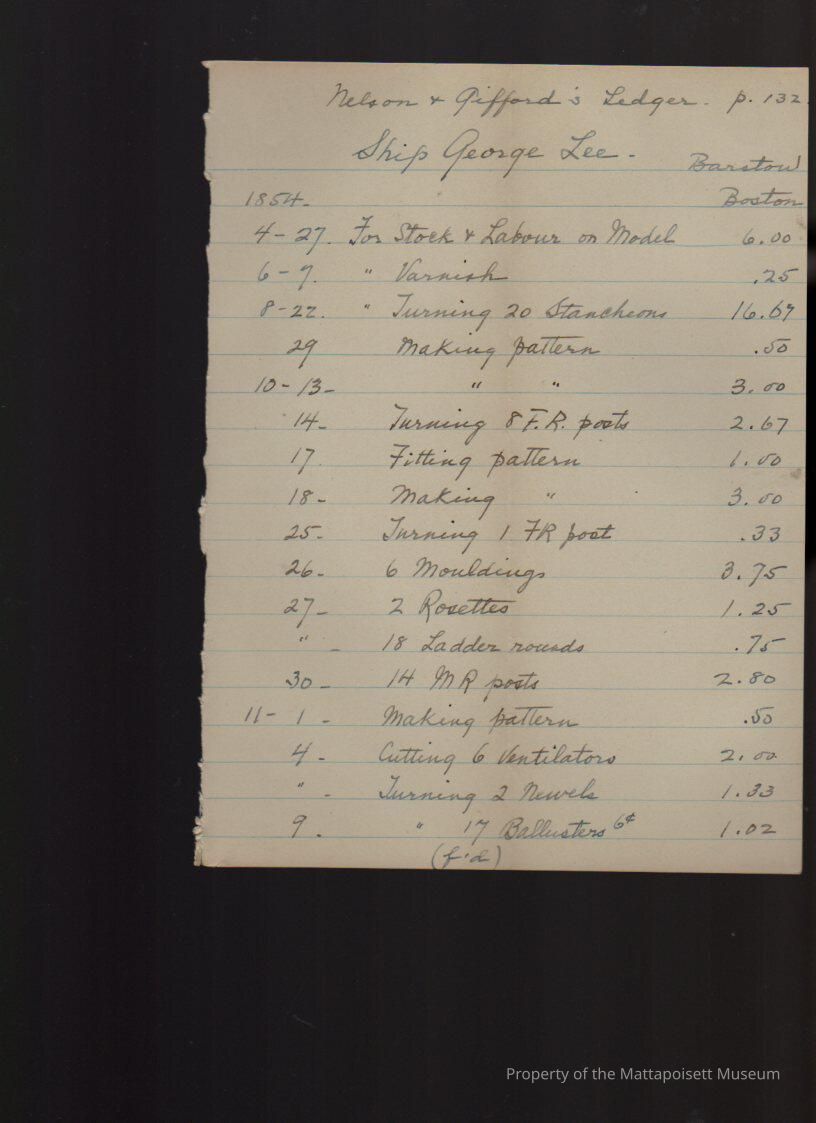 Nelson & Gifford's Ledger. p. 132
Ship George Lee.
Barstow
1854. Boston
4-27. For Stock & Labour on Model 6.00
6-9. " Varnish .25
8-22. " Turning 20 Stancheons 16.67
29 Making pattern .50
10-13- " " 3.00
14- Turning 8 F.R. posts 2.67
17. Fitting pattern 1.00
18- Making " 3.00
25- Turning 1 FR post .33
26- 6 Mouldings 3.75
27- 2 Rosettes 1.25
" - 18 Ladder rounds .75
30- 14 MR posts 2.80
11-1- Making pattern .50
4- Cutting 6 Ventilators 2.00
" - Turning 2 Newels 1.33
9. " 17 Ballusters 6¢ 1.02
(f'd)
Property of the Mattapoisett Museum